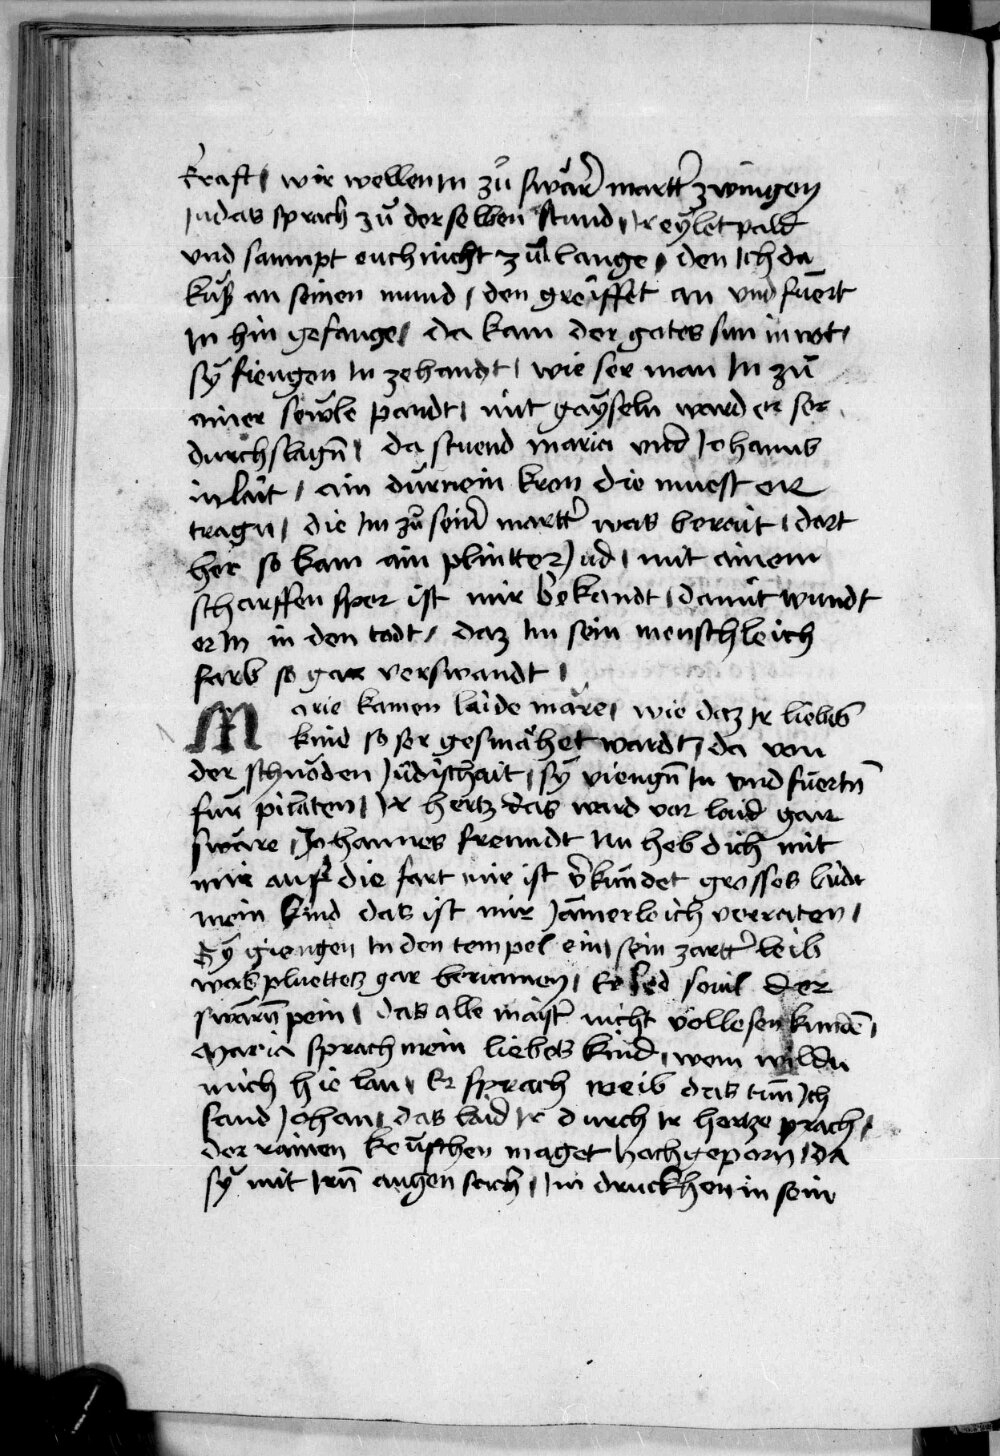 kraft / wir wellen in zů swärer martter zwingen
Judas sprach zů der selben stund / Ir eylet pald
vnd saumpt euch nicht zů lange / den Ich da
kuß an seinen mund / den greiffet an vnd fuert
In hin gefange / da kam der gates sun in not /
sÿ fiengen In zehandt / wie ser man In zů
ainer sewle pandt / mit gayseln ward er ser
durchslagn̄ / da stuend maria vnd Johanns
in lait / ain dürnein kron die muest er
tragn / die Im zů seiner martter was berait / dort
her so kam ain plintter Jud / mit ainem
scharffen sper ist mir bekandt / damit wundt
er In in den todt / daz Im sein menschleich
farb so gar verswandt /
Marie kamen laide märe / wie daz Ir liebes
kind so ser gesmähet wardt / da von
der schnöden Jüdischait / sÿ viengn̄ In vnd fuertn̄
für pilaten / Ir hertz das ward vor laid gar
swäre / Johannes freundt nu heb dich mit
mir auf die fart mir ist verkündet grosses laidt
mein kind das ist mir Jämerleich verraten /
Sÿ giengen In den tempel ein / sein zartter leib
was pluettes gar berunnen / Er led souil der
swärn̄ pein / das alle maister nicht vollesen kunden /
Maria sprach mein liebes kind / wem wildu
mich hie lan / Er sprach weib das tun̄ Ich
sand Johan / das laid Ir durch Ir hertze prach /
der rainen keuschen maget hochgeporn / da
sÿ mit Irn̄ augen sach / Im druckhen in sein